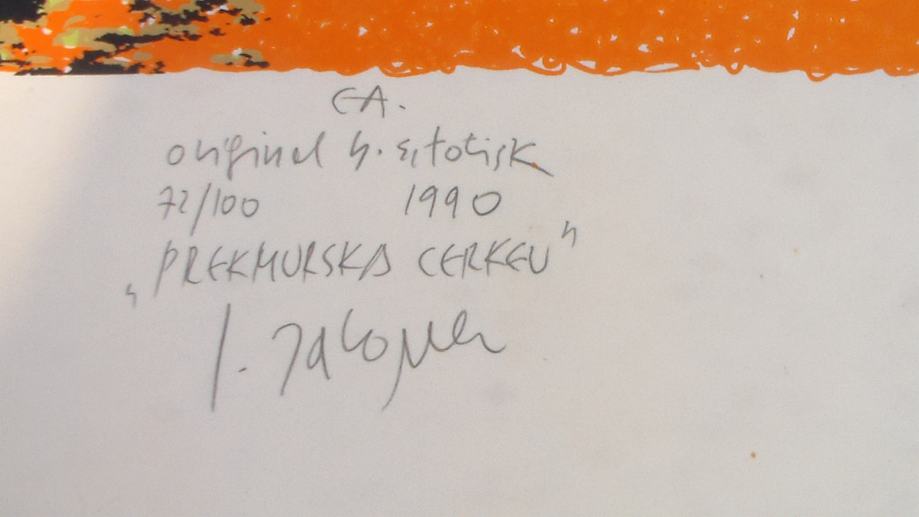 EA.
original b. sitotisk
72/100 1990
„PREKMURSKA CERKEV"